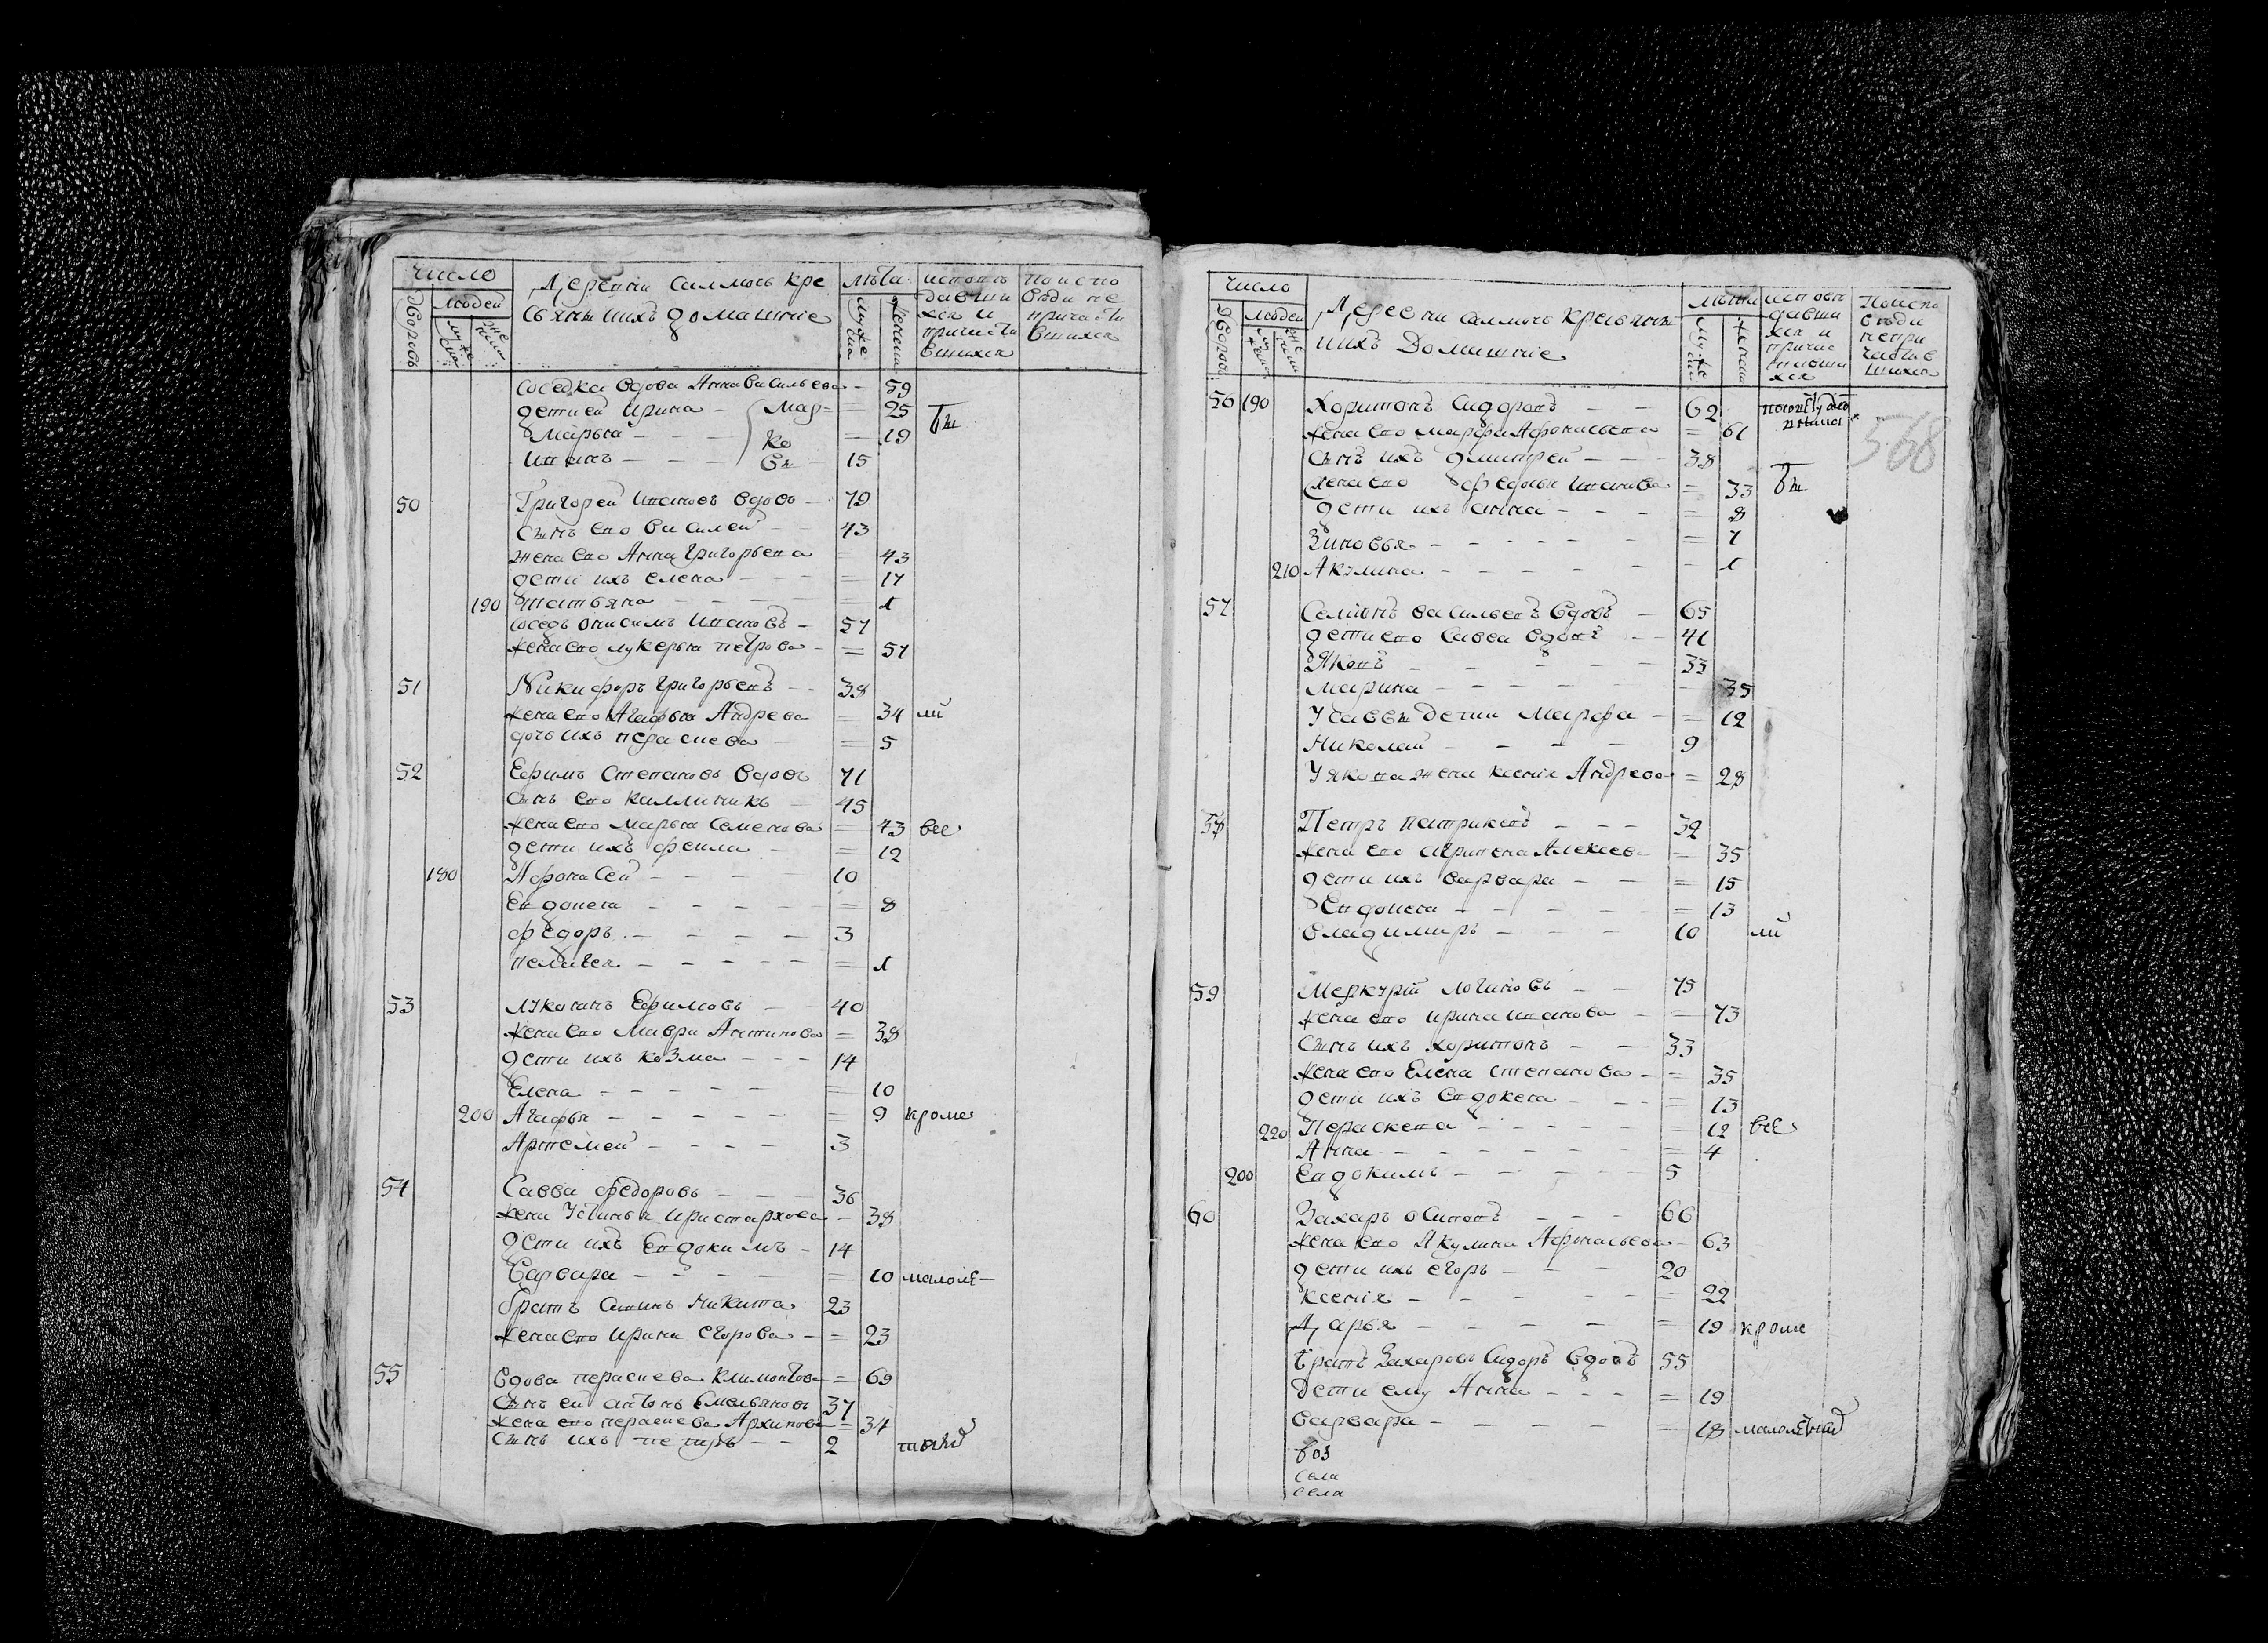 число
Деревни саммось кре
стьянинъ домашніе
лѣта
исповѣ
давши
хся и
причасти
вшихся
По испо
вѣди не
причасти
вшихся
дворовъ
людей
муже
ска
женска
муже
ска
женска
соседка вдова Анна Васильева – 59
дети ей Ирина – Мар= = 25
Марья – – – ко = 19 бы
Иванъ – – – вы 15
50 Григорей Ивановъ вдовъ – 79
сынъ ево Василей – 43
жена ево Анна Григорьева = 43
дети ихъ Елена – – – = 17
190 Татьяна – – – = 1
соседъ Онисимъ Ивановъ – 57
жена ево Лукерья Петрова – = 57
51 Никифоръ Григорьевъ – – 38
жена ево Агафья Андрева = 34 ли
дочь ихъ Парасиева – = 5
52 Ефимъ Степановъ вдовъ 71
сынъ ево Каллиникъ – 45
жена ево Марья Семенова = 43 все
дети ихъ Феила – = 12
180 Афонасей – – – – 10
Евдокея – – – – – = 8
Федоръ – – – – – 3
Пелагея – – – – – = 1
53 Лукоянъ Ефимовъ – 40
жена ево Мавра Антипова = 38
дети ихъ Козма – – – 14
Елена – – – – – = 10
200 Агафья – – – – – = 9 кроме
Артемей – – – – 3
54 Савва Федоровъ – – – 36
жена Устинья Иристархова – 38
дети ихъ Евдокимъ – 14
Варвара – – – – – = 10 малоле–
братъ Савинъ Никита 23
жена ево Ирина Егорова – = 23
55 вдова Парасиева Климонтова = 69
сынъ ей Антонъ Емельяновъ 37
жена ево Парасиева Архипова = 34
сынъ ихъ Петръ – – 2 тныхъ
число
Деревни саммось крестьян
инъ Домашніе
лѣта
исповѣ
давши
хся и
причас
тивши
хся
Поиспо
вѣди
непри
частив
шихся
дворовъ
людей
муже
ска
женска
56 190 Харитонъ Сидоровъ – – 62
568
жена ево Марфа Афонасьева = 61
сынъ ихъ Дмитрей – – – 38
жена ево Федосья Иванова = 33 бы
дети ихъ Анна – – – = 8
Зиновья – – – – – – = 7
210 Акулина – – – – – – 1
57 Семионъ Васильевъ вдовъ – 65
дети ево Савва вдовъ – – 41
Яковъ – – – – – 33
Марина – – – – – – 35
У Саввы дети Марфа – = 12
Николай – – – – 9
У Якова жена Ксения Андрева = 28
58 Петръ Патрикевъ – – – 32
жена ево Агрипена Алексеев – = 35
дети ихъ Варвара – – = 15
Евдокея – – – – – = 13
Владимиръ – – – – 10 ли
59 Меркурій Логиновъ – – 75
жена ево Ирина Иванова – = 73
сынъ ихъ Харитонъ – – 33
жена ево Елена Степанова – = 35
дети ихъ Евдокея – – – = 13
220 Параскева – – – – – = 12 все
Анна – – – – – – = 4
200 Евдокимъ – – – – – 5
60 Захаръ Осиповъ – – – 66
жена ево Акулина Афонасьева – 63
дети ихъ Егоръ – – – 20
Ксения – – – – – – = 22
Дарья – – – – – = 19 кроме
братъ Захаровъ Сидоръ вдовъ 55
Дети ему Анна – – – = 19
Варвара – – – – – = 18 малолѣтныхъ